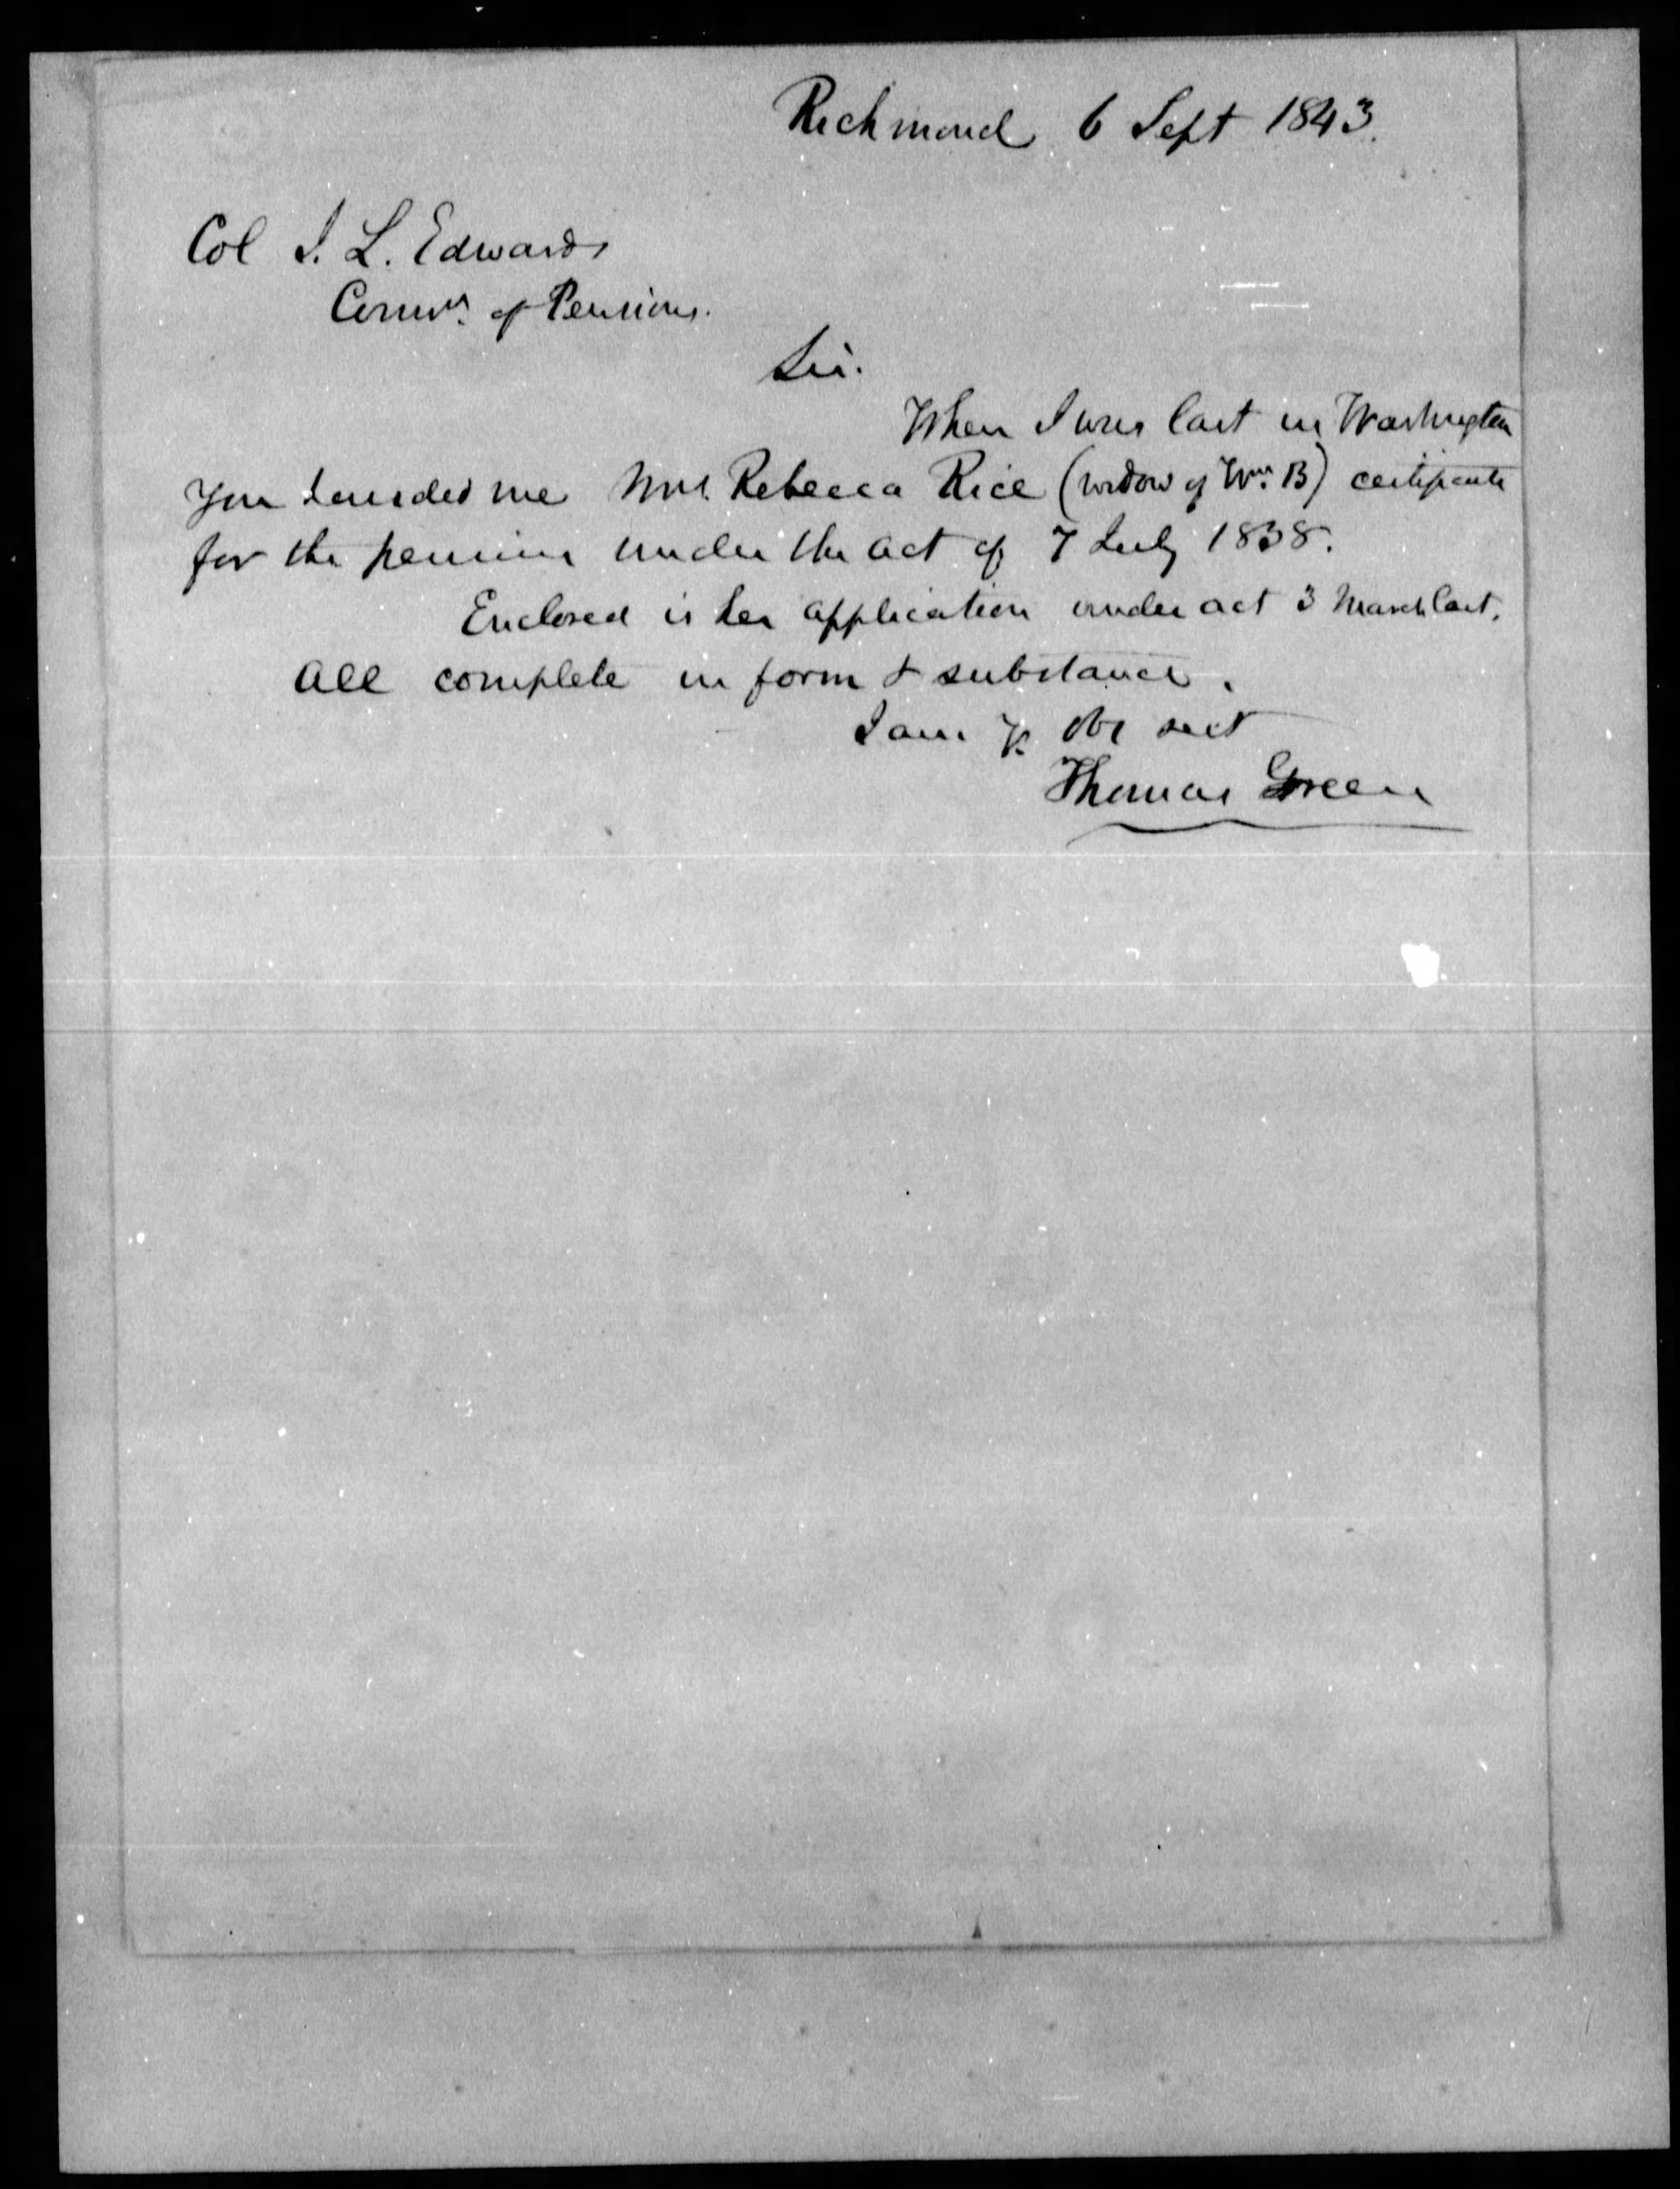 Richmond 6 Sept 1843.
Col J. L. Edwards
Comrs. of Pensions.
Sir.
When I was last in Washington
you handed me Mrs. Rebecca Rice (widow of Wm. B) certificate
for the pension under the act of 7 July 1838.
Enclosed is her application under act 3 March last.
All complete in form & substance.
I am yr obt servt
Thomas Green